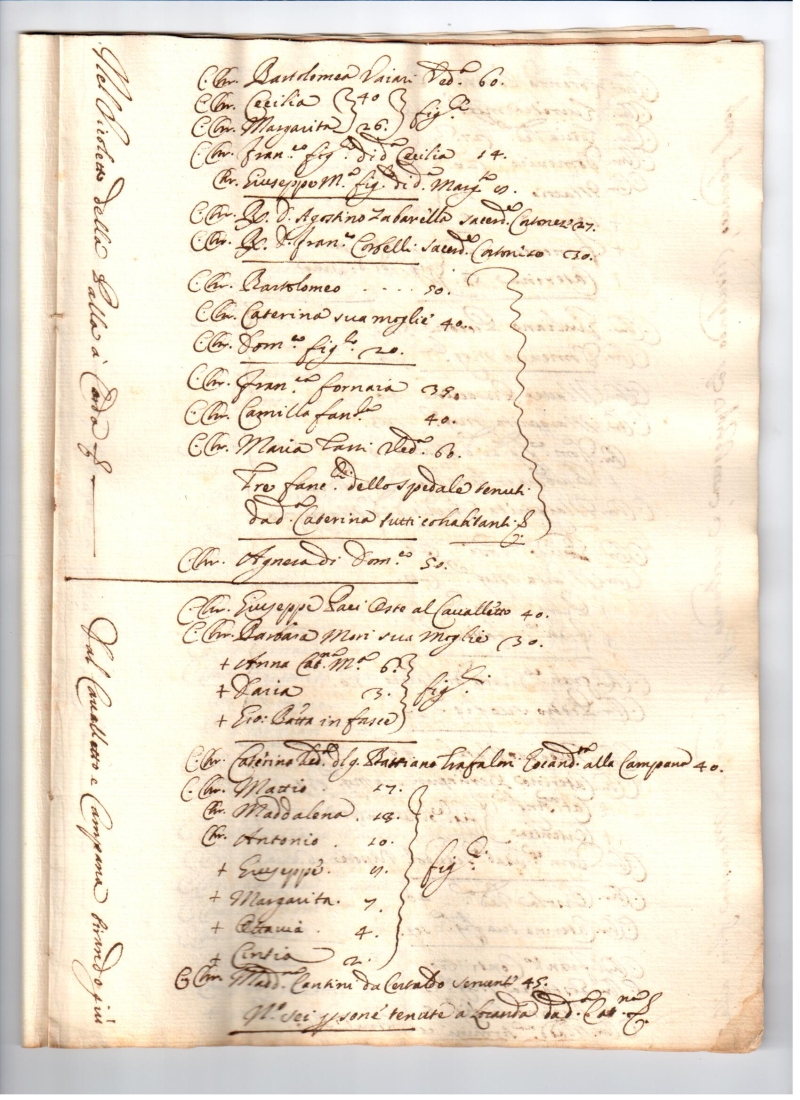 Nel Vicoletto della Palla à Corda
C. Chr. Bartolomea Vaiari Ved.ª 60.
C. Chr. Cecilia 40
C. Chr. Margarita 26. fig.e
C. Chr. Fran.co fig.o di d.ª Cecilia 14.
Chr. Giuseppe M.ª fig.o di d.ª Marg.ª 9.
C. Chr. R. D. Agostino Zabarella sacerd.e Cortonese 27.
C. Chr. R. D. Fran.co Corselli sacerd.e Cortonese 30.
C. Chr. Bartolomeo . . . . 50.
C. Chr. Caterina sua moglie 40.
C. Chr. Dom.co fig.lo 20.
C. Chr. Fran.ca fornaia 35.
C. Chr. Camilla fan.la 40.
C. Chr. Maria Ved.ª 60.
Tre fanc.li dello spedale tenuti
da d.ª Caterina tutti cohabitanti
C. Chr. Agnesa di Dom.co 50.
Dal Cavalletto e Campana tirando giù
C. Chr. Giuseppe Paci Oste al Cavalletto 40.
C. Chr. Barbara Mori sua Moglie 30.
+ Anna Cat.na M.ª 6.
+ Daria 3. fig.li
+ Gio: Batta in fasce
C. Chr. Caterina Ved.ª d'l q. Bastiano Locand.ra alla Campana 40.
C. Chr. Mattio . 17.
Chr. Maddalena . 13.
Chr. Antonio . 10.
+ Giuseppe . 9. fig.li
+ Margarita . 7.
+ Ottavia . 4.
+ Cintia 2.
C. Chr. Madd.na Contini da Certaldo servente 45.
N.o sei psone tenute a Locanda da d.ª Cat.na